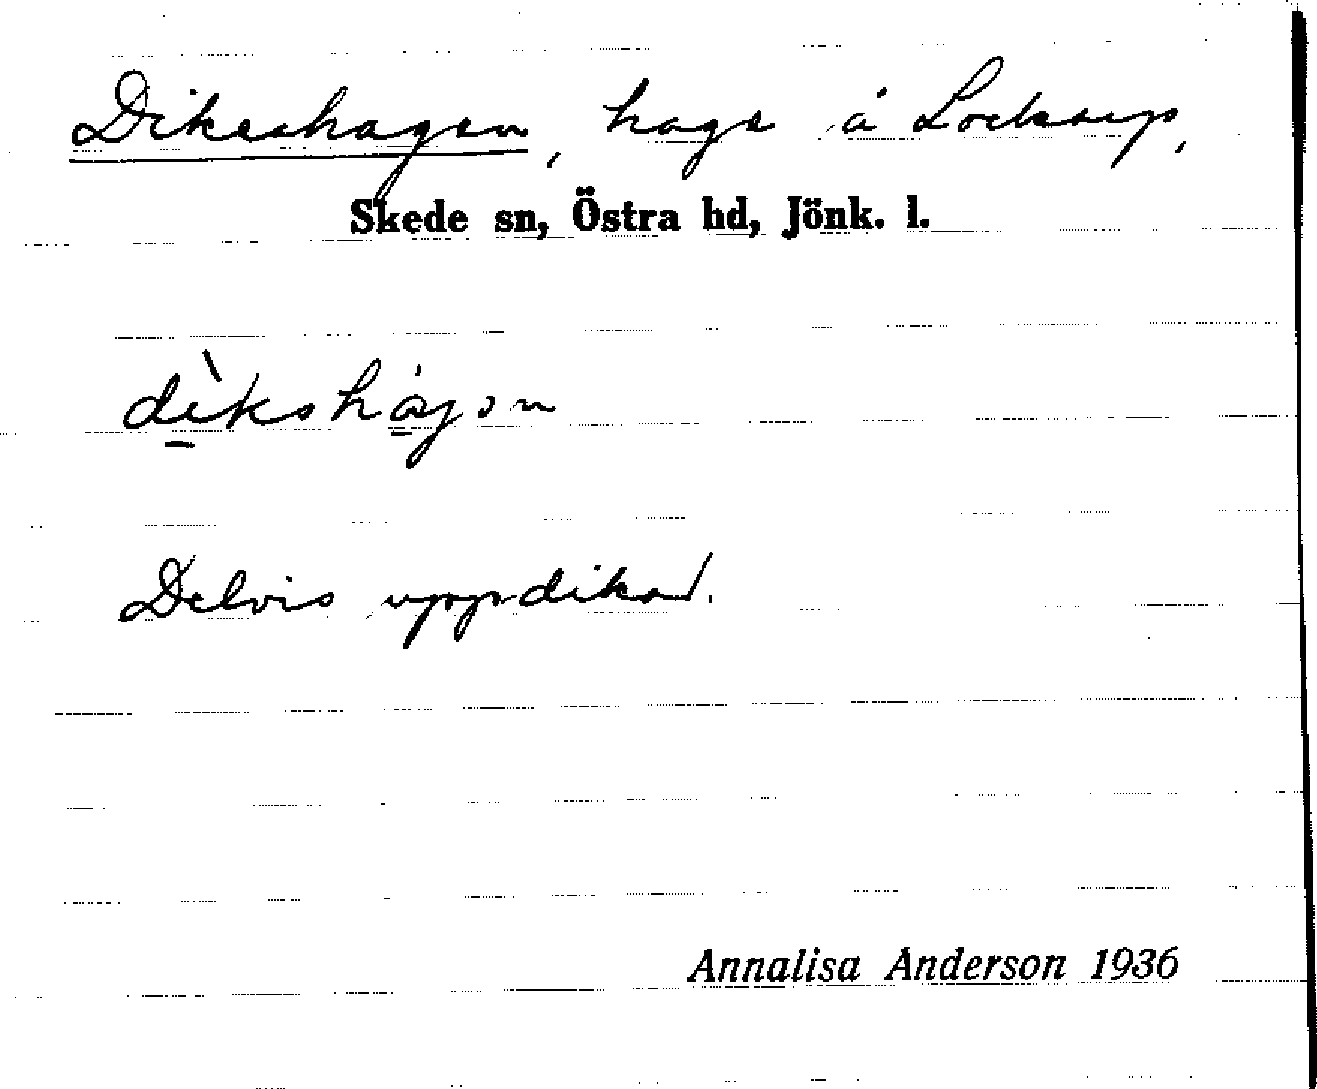 Dikeshagen, hage å Lockarp,
Skede sn, Östra hd, Jönk. l.
dìkshágən
Delvis uppdikad.
Annalisa Anderson 1936